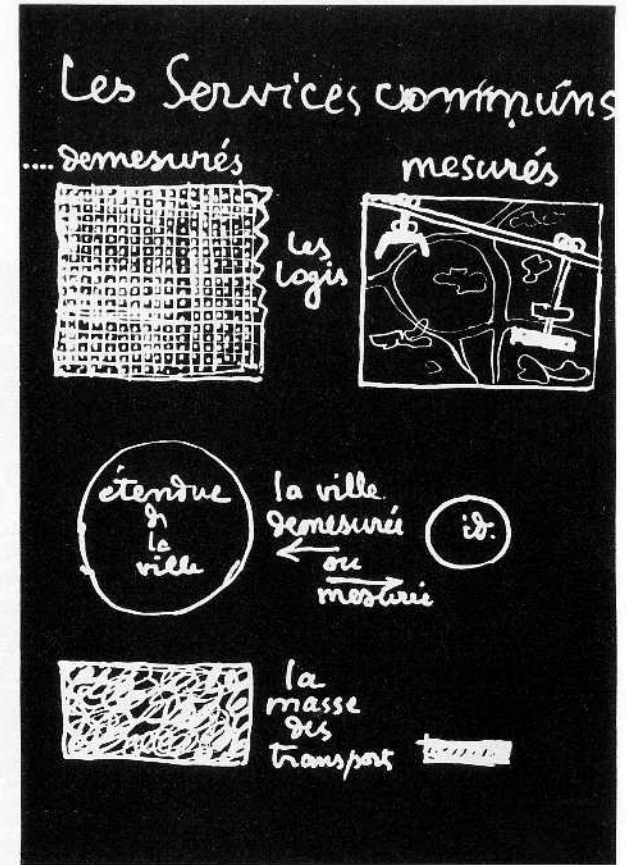 Les Services communs
.... demesurés
mesurés
les
logis
étendue
de
la
ville
la ville
demesurée
ou
mesurée
id.
la
masse
des
transport